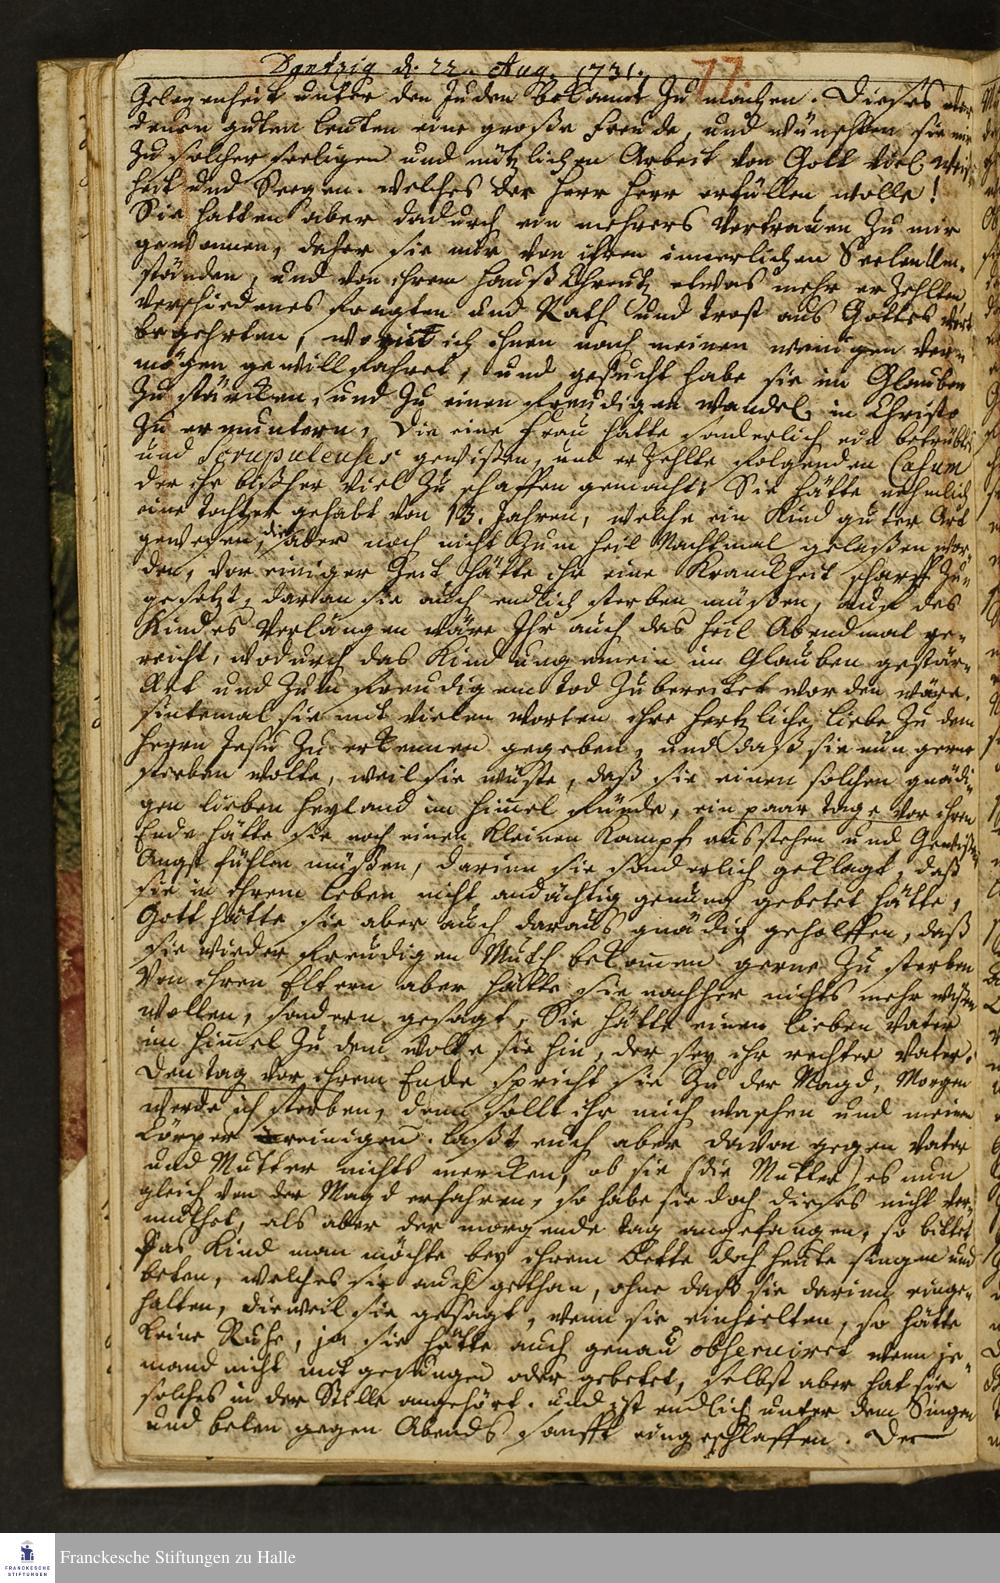 Dantzig d. 22. Aug. 1731.
77.
Gelegenheit unter den Juden bekannt zu machen. Dieses war
denen guten leuten eine große Freude, und wünschten sie mir
zu solcher seeligen und nützlichen Arbeit von Gott viel Weis-
heit und Seegen. welches der Herr Herr erfüllen wolle!
Sie hatten aber dadurch ein mehrers Vertrauen zu mir
gewonnen, daher sie mir von ihren innerlichen Seelen Um-
ständen, und von ihrem Hauß Creutz etwas mehr erzehlten,
verschiedenes fragten und Rath und trost aus Gottes Wort
begehrten, womit ich ihnen nach meinen wenigen Ver-
mögen gewillfahret, und gesucht habe sie im Glauben
zu stärcken, und zu einen freudigen wandel in Christo
zu ermuntern. Die eine Frau hatte sonderlich ein betrübtes
und Scrupuleuses gewißen, und erzehlte folgenden Casum
der ihr bißher viel zu schaffen gemacht: Sie hätte nehmlich
eine tochter gehabt von 13. Jahren, welche ein Kind guter Art
gewesen, die aber noch nicht zum heil Nachtmal gelaßen wor-
den, vor einiger Zeit hätte ihr eine Kranckheit scharff zu-
gesetzt, daran sie auch endlich sterben müßen, auf des
Kindes Verlangen wäre Ihr auch das heil Abendmal ge-
reicht, wodurch das Kind ungemein im Glauben gestär-
cket und zum freudigen tod zubereitet worden wäre.
sintemal sie mit vielen worten ihre hertzliche liebe zu dem
Herrn Jesu zu erkennen gegeben, und daß sie nun gerne
sterben wolte, weil sie wüste, daß sie einen solchen gnädi-
gen lieben Heyland im Himel fünde, ein paar tage vor ihren
Ende hätte sie noch einen kleinen Kampf ausstehen und Gewißens
Angst fühlen müßen, darinn sie sonderlich geklagt, daß
sie in ihrem leben nicht andächtig genung gebetet hätte,
Gott hätte sie aber auch daraus gnädig geholffen, daß
sie wieder freudigen Muth bekomen gerne zu sterben
Von ihren Eltern aber hätte sie nachher nichts mehr wißen
wollen, sondern gesagt, Sie hätte einen lieben Vater
im Himel zu dem wolte sie hin, der sey ihr rechter Vater.
Den tag vor ihrem Ende spricht sie zu der Magd, Morgen
werde ich sterben, denn sollt ihr mich waschen und meinen
Cörper reinigen. laßt euch aber davon gegen Vater
und Mutter nichts mercken, ob sie (die Mutter) es nun
gleich von der Magd erfahren, so habe sie doch dieses nicht ver-
muthet, als aber der morgende tag angefangen, so bittet
das Kind man möchte bey ihrem Bette doch heute singen und
beten, welches sie auch gethan, ohne daß sie darinn einge-
halten, dieweil sie gesagt, wenn sie einhielten, so hätte
keine Ruhe, ja sie hätte auch genau observiret wenn je-
mand nicht mitgesungen oder gebetet, selbst aber hat sie
solches in der Stille angehört. und ist endlich unter dem Singen
und beten gegen Abends sanfft eingeschlaffen. Der
FRANCKESCHE STIFTUNGEN
Franckesche Stiftungen zu Halle